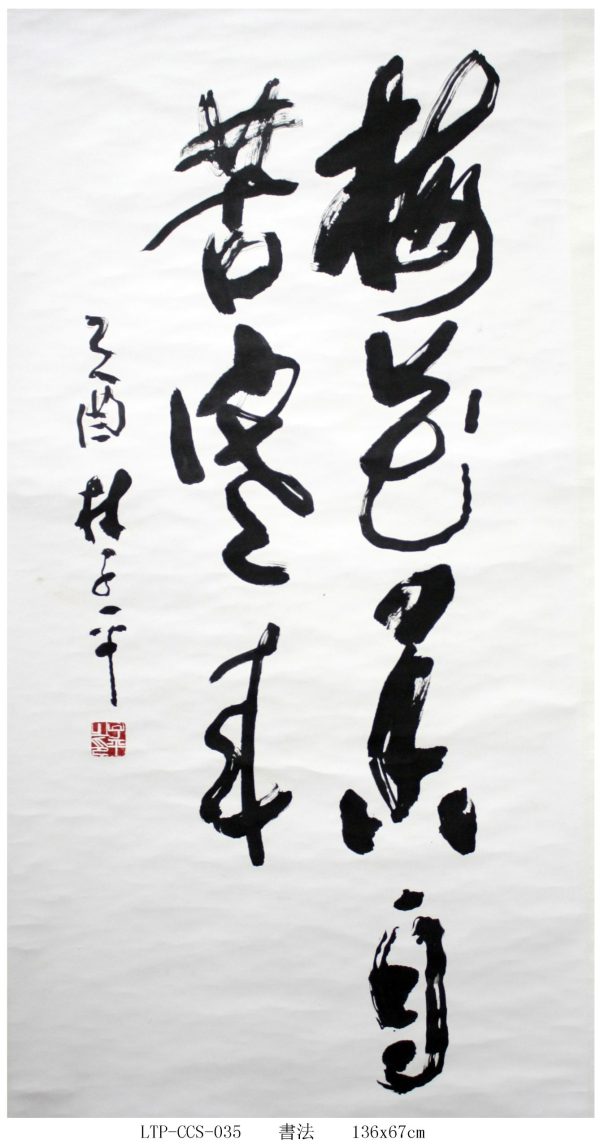 梅花香自
苦寒来
乙酉 子平
LTP-CCS-035 書法 136x67cm